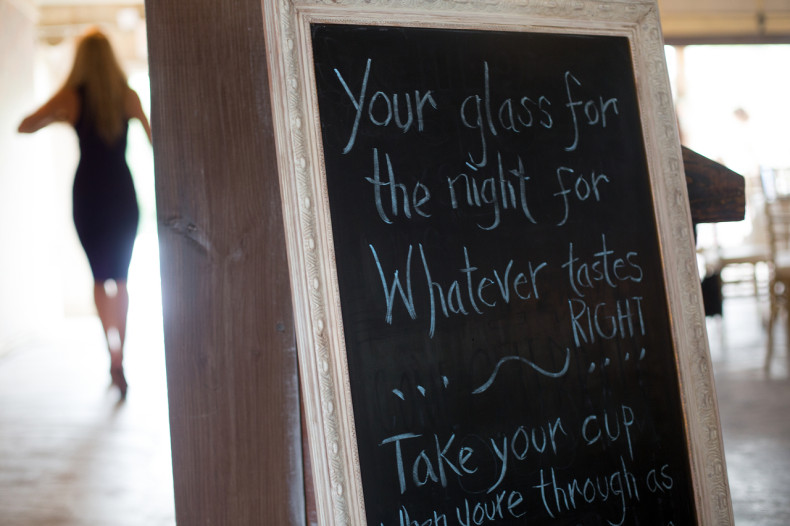 Your glass for
the night for
Whatever tastes
RIGHT
Take your cup
When you're through as